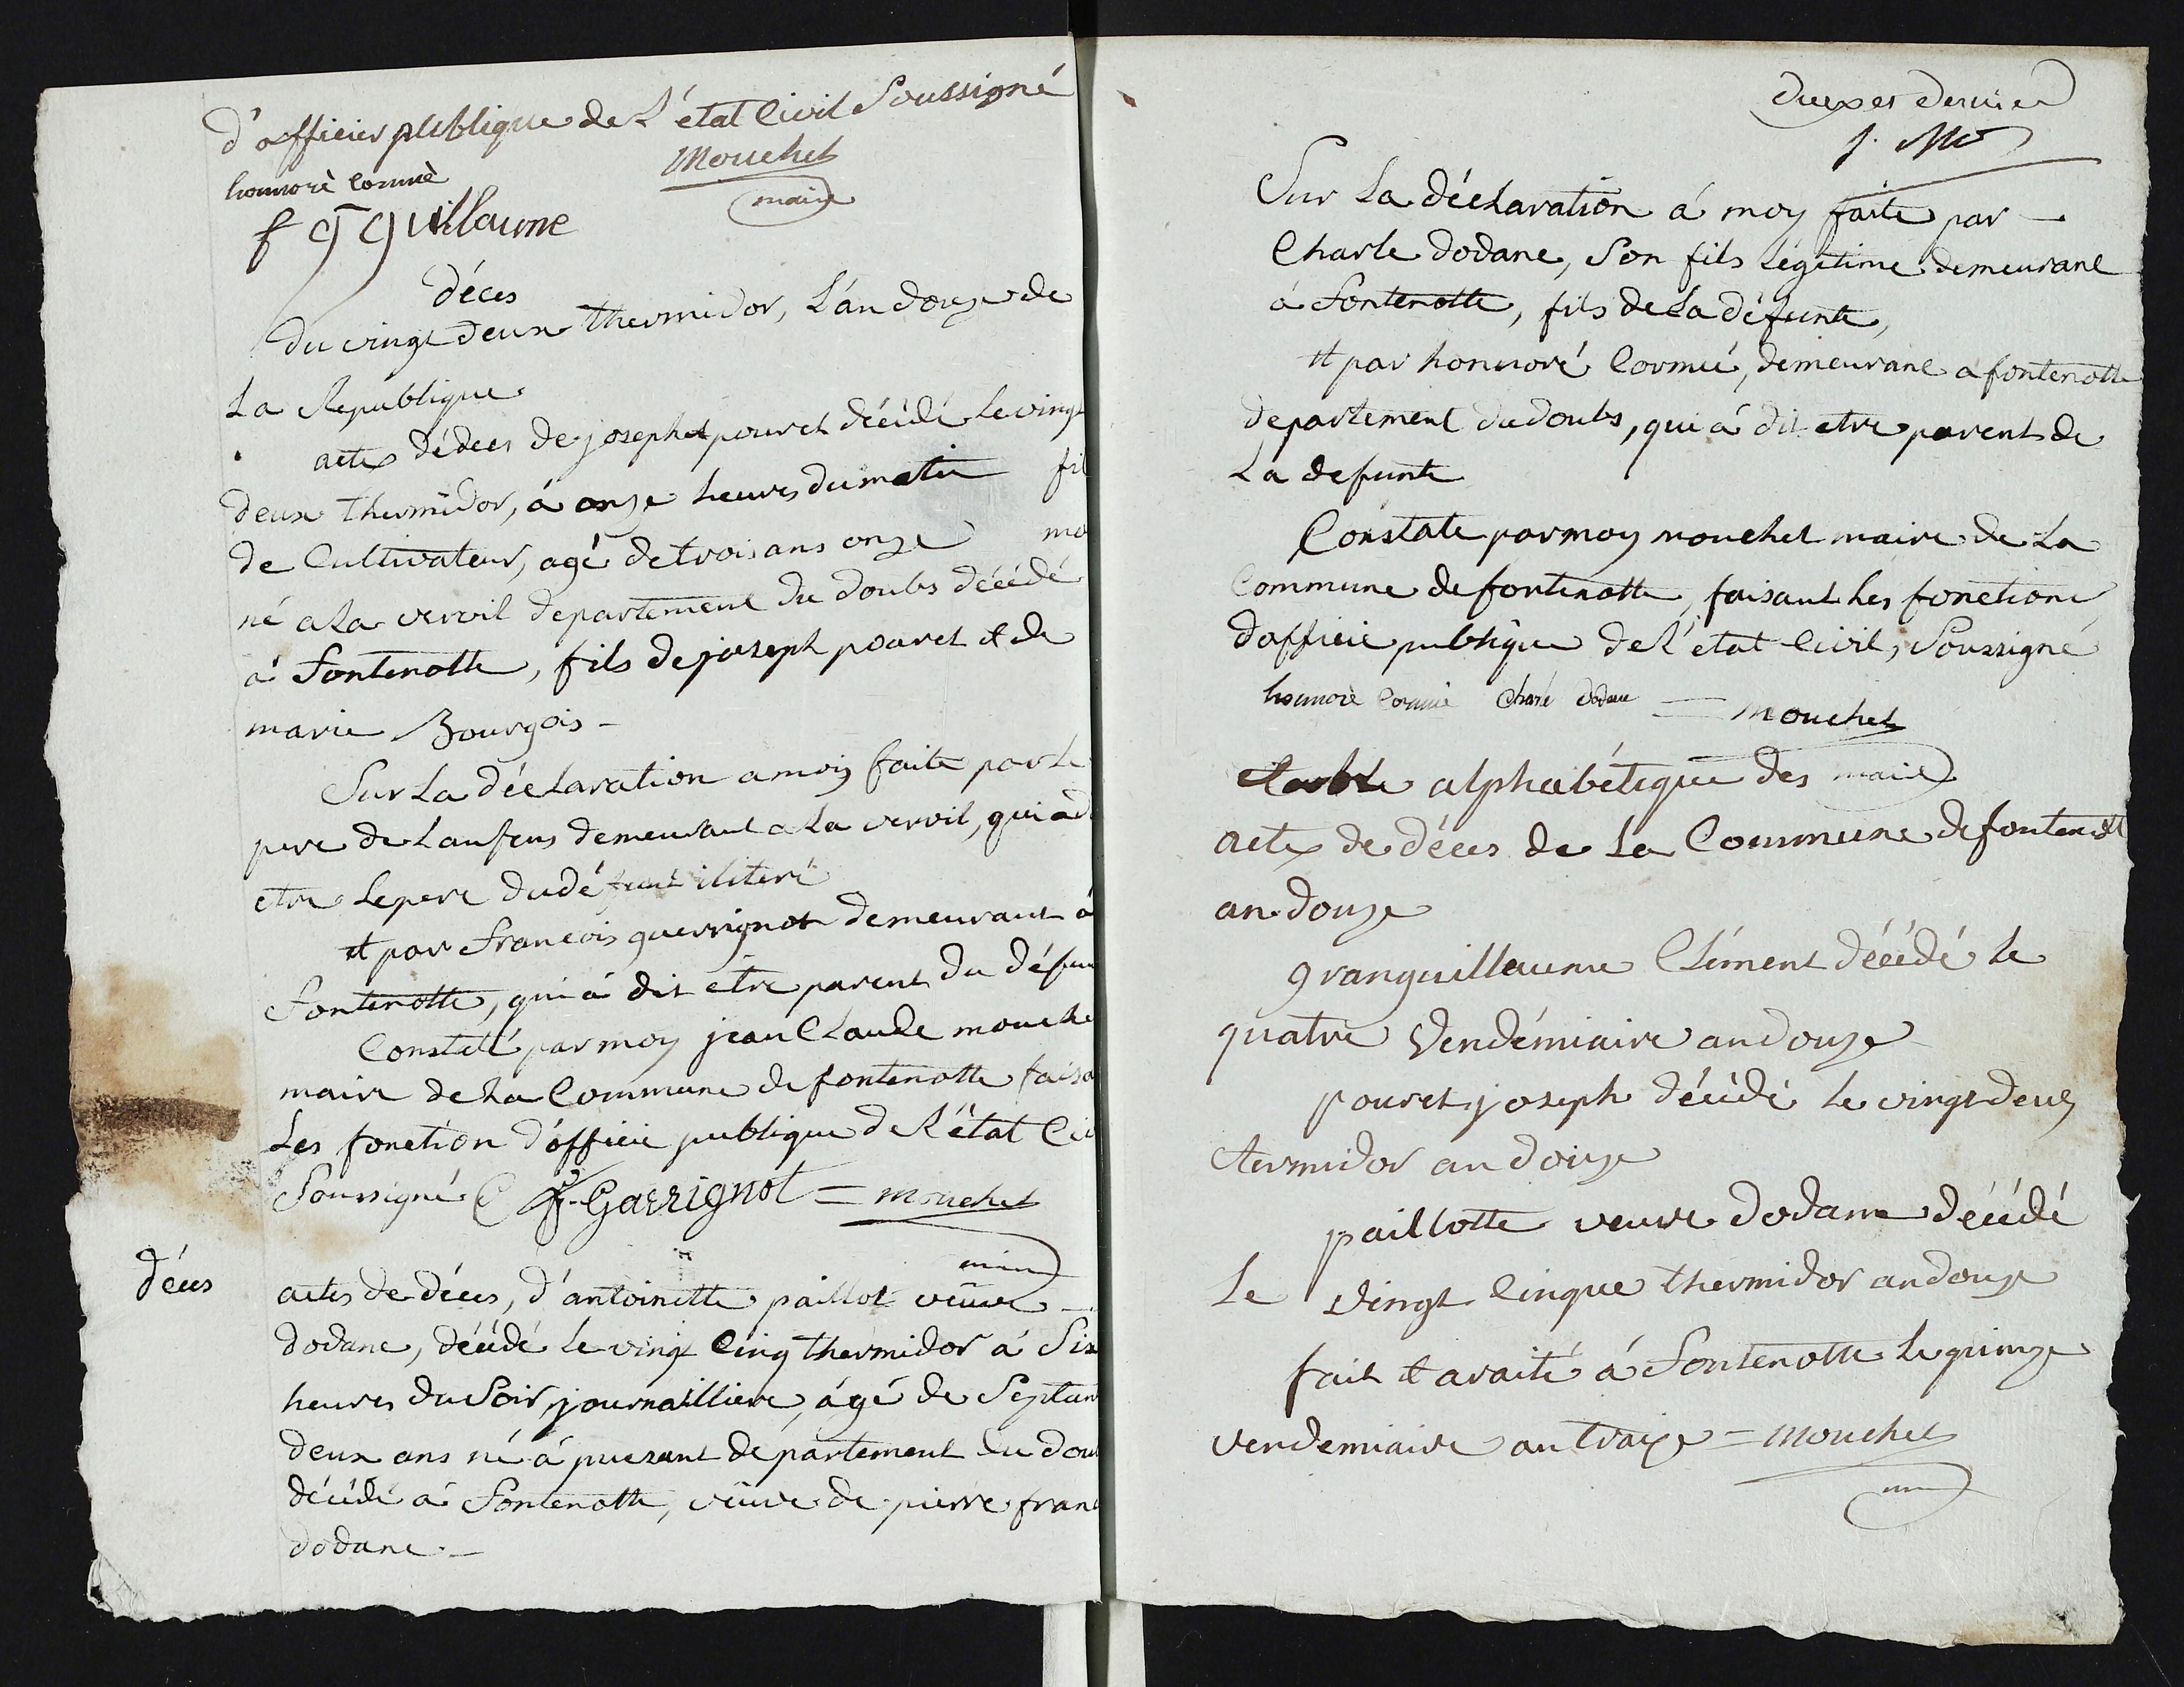 d'officier publique de L'état Civil Soussigné
honnorè Cormiè
Mouchet
maire
f G Guillaume
déces
du vingt deux thermidor, L'an douze de
La Republique
acte dédeces de joseph pouret décédé le vingt
deux thermidor, á onze heures du matin fil
de Cultivateur, agé de trois ans onze mo
né a La vervil departement du doubs décédé
á Fontenotte, fils de joseph pouret et de
marie Bourgois -
Sur La déclaration a moy faite par le
pere de L'enfens demeurant a La vervil, qui a d
etre le pere du défunt iliteré
et par Francois guerrignot demeurant á
Fontenotte, qui á dit etre parent du défun
Constaté par moy jean Claude mouche
maire de La Commune de fontenotte faisa
Les fonction d'officie publique de L'état Civ
Soussigné f. Garrignot = mouchet
maire
déces
actes de déces, d'antoinette paillot veuve
dodane, décédé le vingt Cinq thermidor á Six
heures du Soir, journailliere, ágé de Septan
deux ans né á puesant département du dou
décédé á Fontenotte, veuve de pierre fran
dodane. -
et dernier
Sur La déclaration á moy faite par -
Charle dodane, Son fils légitime demeurant
á Fontenotte, fils de La défunte,
et par honnoré Cormié, demeurant a fontenotte
departement du doubs, qui á dit etre parent de
La defunte
Constate par moy mouchet maire de La
Commune de fontenotte, faisant les fonctions
d'officie publique de L'état Civil, Soussigné
honnorè Cormié Charle dodane = mouchet
maire
table alphabétique des
acte de déces de La Commune de fontenott
an douze
granguillaume Clément décédé le
quatre Vendémiaire an douze
pouret joseph décédé le vingt deux
termidor an douze
paillotte veuve dodane décédé
Le vingt Cinque thermidor an douze
fait et araité á Fontenotte le quinze
vendemiaire an traize = Mouchet